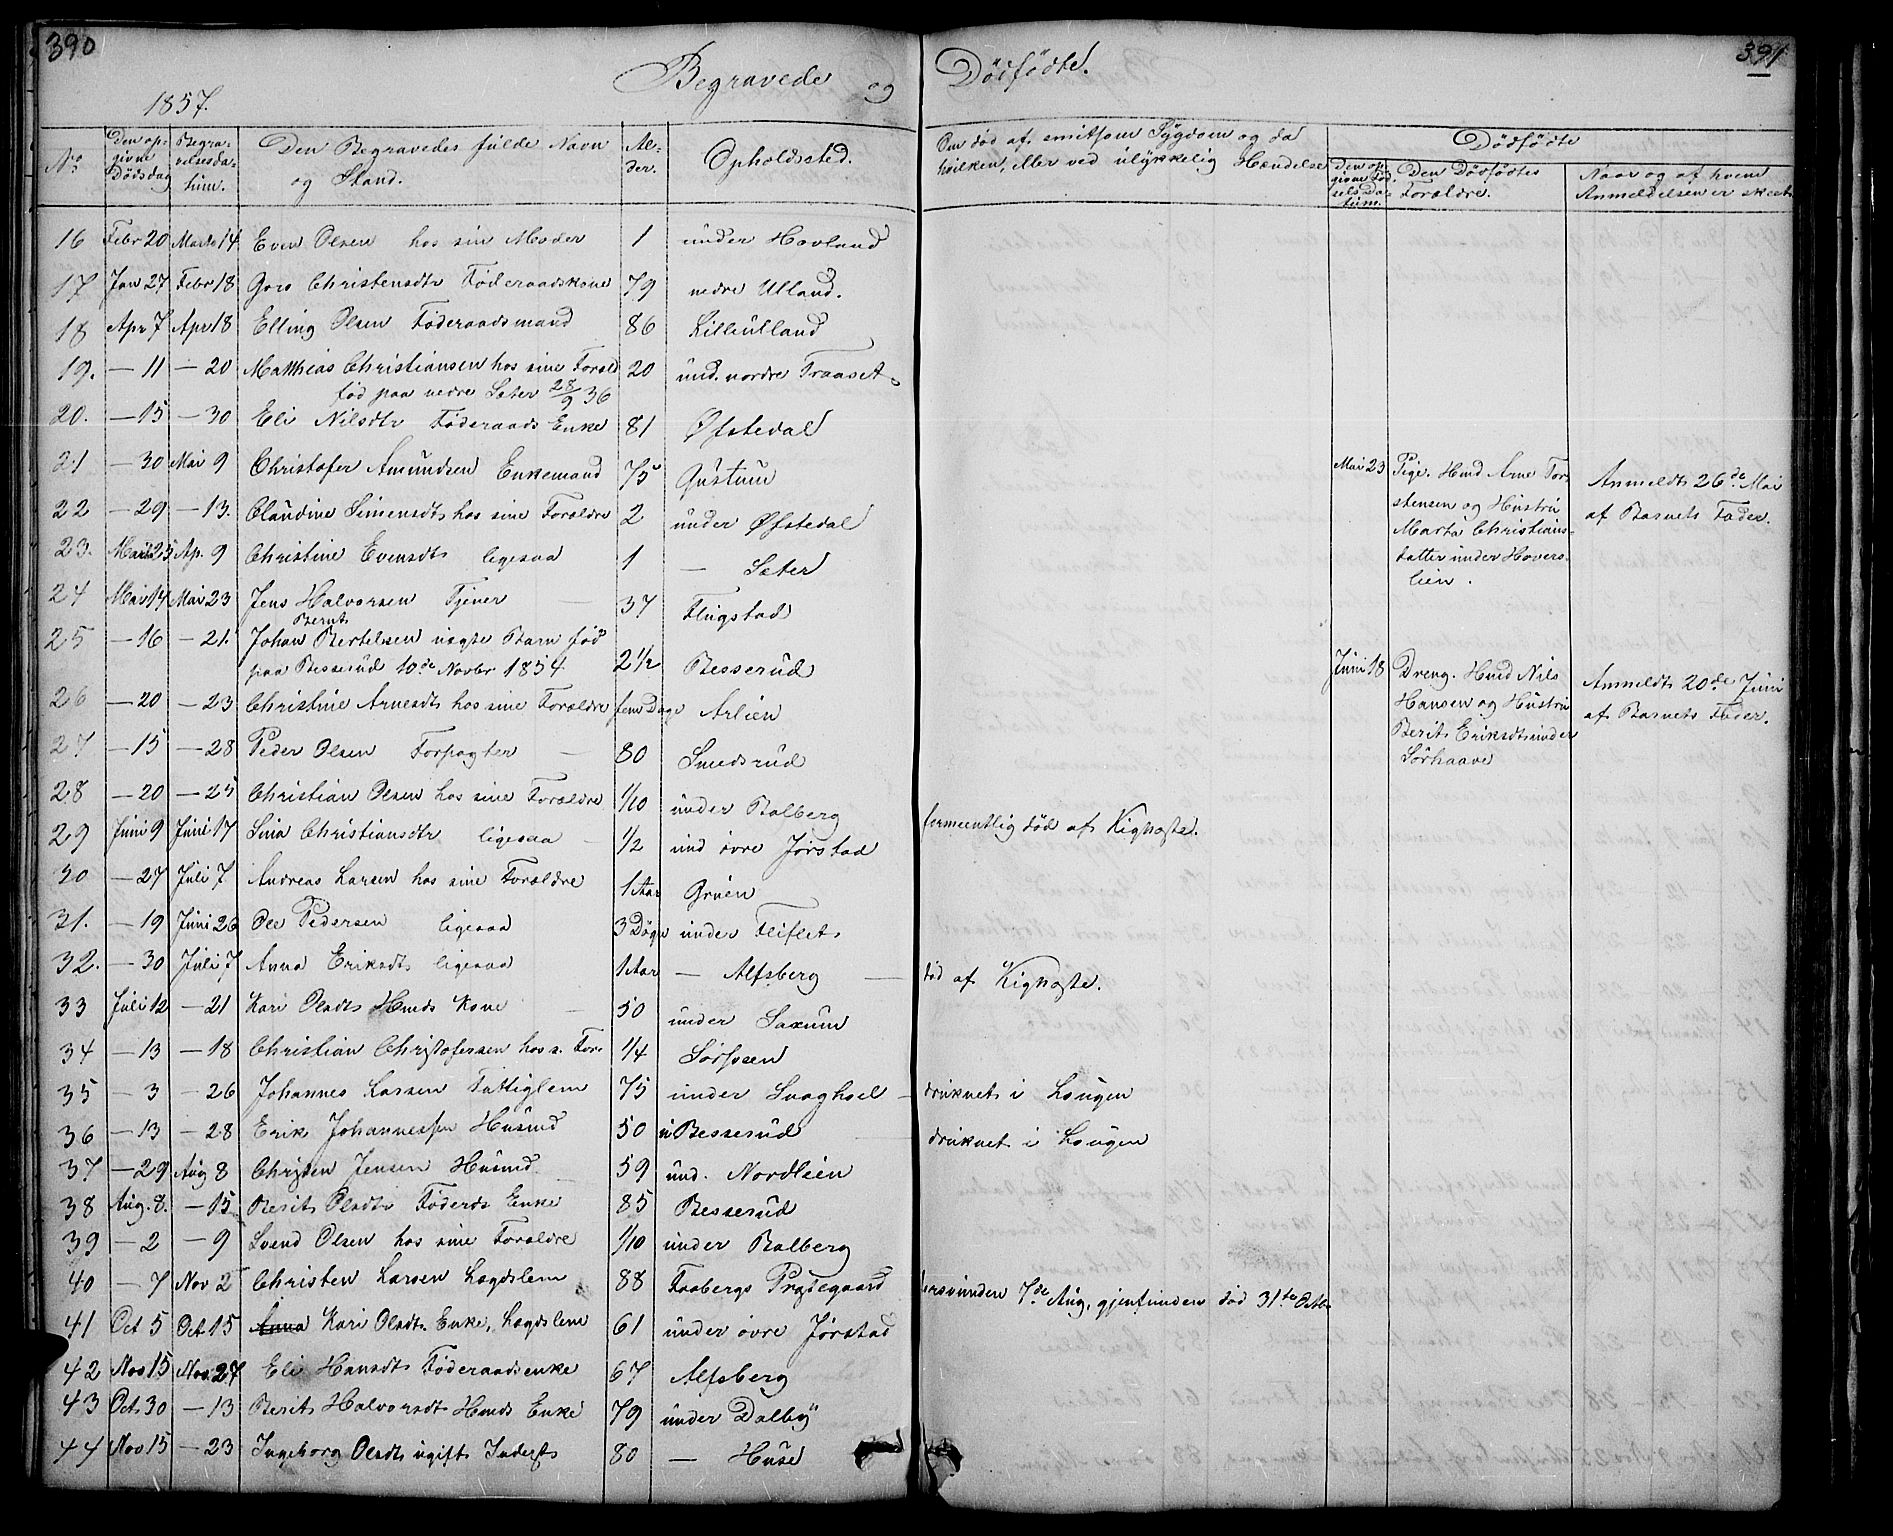 390
391
Begravede og Dödfödte.
1857.
No
Den op-
givne
Dødsdag
Begra-
velsesda-
tum.
Den Begravedes fulde Navn
og Stand.
Al-
der.
Opholdssted.
Om død af smitsom Sygdom og da
hvilken, eller ved ulykkelig Hændelse
Dødfödte
Den op-
givne Föd-
sels Da-
tum.
Den Dödfödtes
Forældre.
Naar og af hvem
Anmeldelsen er skeet
16 Febr 20 Marts 14 Even Olsen hos sin Moder 1 under Hovland
17 Jan 27 Febr 18 Goro Christensdtr Föderaadskone 79 nedre Utland.
18 Apr 7 Apr 18 Elling Olsen Föderaadsmand 86 Lilleulland
19. — 11 — 20 Matthias Christiansen hos sine Foræld 20 und. nordre Fraaset
föd paa nedre Sæter 28/9 36
20. — 15 — 30 Eli Nilsdtr Föderaads Enke 81 Øfstedal
21 — 30 Mai 9 Christofer Amundsen Enkemand 75 Gustum
22 — 29 — 13. Claudine Simensdtr hos sine Forældre 2 under Øfstedal
23. Marts 25 Ap. 9 Christine Evensdtr ligesaa 1 — Sæter
24 Mai 14 Mai 23 Jens Halvorsen Tjener — 37 Flugstad
Bernt
25 — 16 — 21. Johan Bertelsen uægte Barn föd
paa Besserud 10de Novbr 1854 2 1/2 Besserud
26 — 20 — 23 Christine Arnesdtr hos sine Forældre fem Dage Arlien
27 — 15 — 28 Peder Olsen Forpagter — 80 Smedsrud
28 — 20 — 25 Christian Olsen hos sine Forældre 1/10 under Balberg
29 Juni 9 Juni 17 Sina Christiansdtr ligesaa — 1/2 und övre Jörstad formeentlig död af Kighoste.
30 — 27 Juli 7 Andreas Larsen hos sine Forældre 1 Aar Gruen
31. — 19 Juni 26 Ole Pedersen ligesaa 3 Dögn under Fliflet
32. — 30 Juli 7 Anna Eriksdtr ligesaa 1 Aar — Alfsberg — död af Kighoste.
33 Juli 12 — 21 Kari Olsdtr Hmds Kone — 50 under Saxum
34 — 13 — 18 Christian Christofersen hos s. For. 1/4 Sörhoen
35 — 3 — 26 Johannes Larsen Fattiglem 75 under Svaghoel — druknet i Lougen
36 — 13 — 28 Erik Johannessen Husmd 50 u Besserud druknet i Lougen
37 — 29 Aug 8 Christen Jensen Husmd 59 und. Nordlien
38 Aug. 8. — 15 Berit Olsdtr Föderds Enke 85 Besserud
39 — 2 — 9 Svend Olsen hos sine Forældre 1/10 under Balberg
40 — 7 Nov 2 Christen Larsen Lægdslem 88 Faabergs Præstegaard forsvunden 7de Aug, gjenfunden död 31te Octbr
41 Oct 5 Oct 15 Anna Kari Olsdtr. Enke, Lægdslem 61 under övre Jörstad
42 Nov 15 Nov. 27 Eli Hansdtr Föderaadsenke 67 Alfsberg
43 Oct. 30 — 13 Berit Halvorsdtr Hmds Enke 79 under Dalby
44 Nov 15 — 23 Ingeborg Olsdtr ugift Inderst 80 — Huse
Mai 23 Pige. Hmd Arne Tor-
stensen og Hustru
Marta Christians-
datter under Hovers-
lien.
Anmeldt 26de Mai
af Barnets Fader.
Juni 18 Dreng. Hmd Nils
Hansen og Hustru
Berit Eriksdtr under
Sörhaave
Anmeldt 20de Juni
af Barnets Fader.